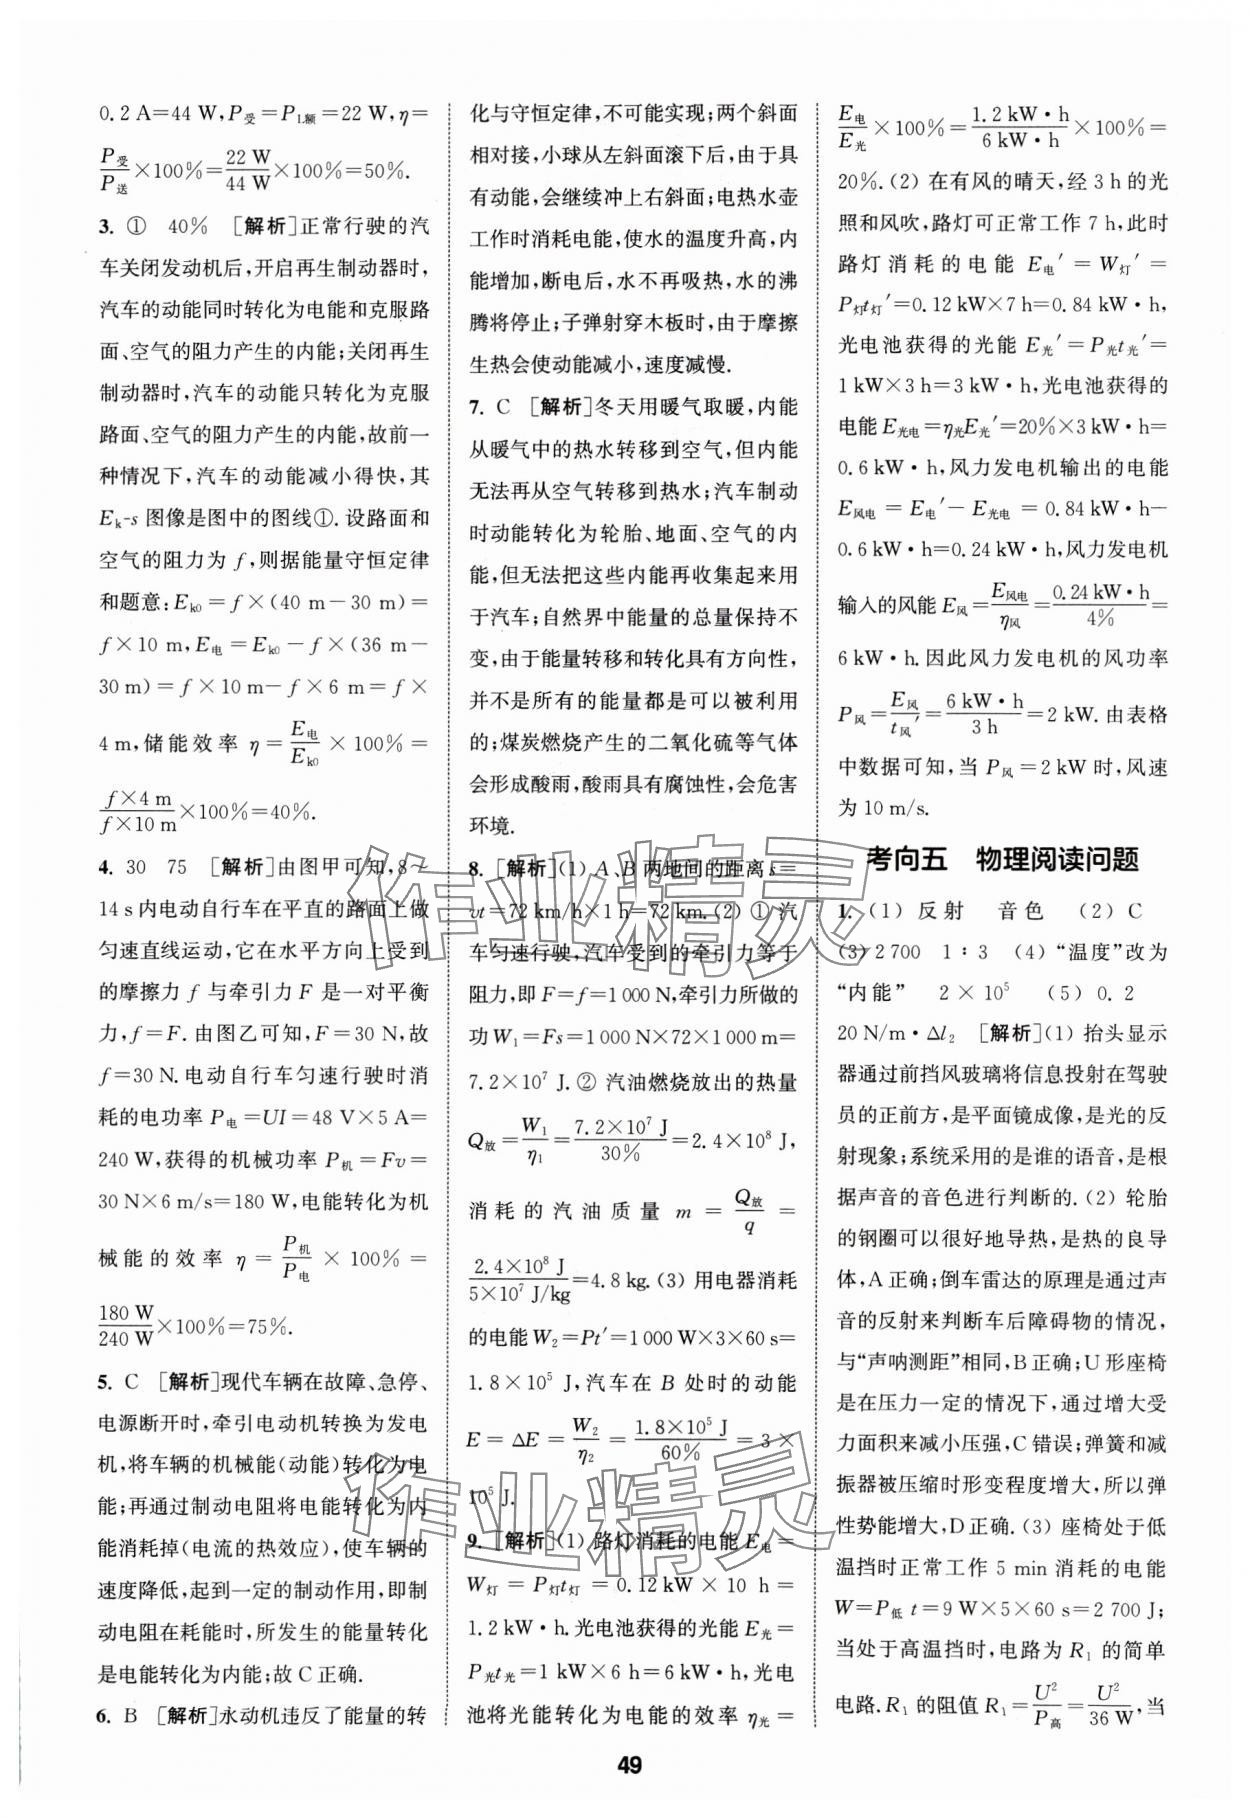 0.2 A=44 W,P受=P1.额=22 W,η=
P受/P送×100%=22 W/44 W×100%=50%.
3. ① 40% [解析]正常行驶的汽
车关闭发动机后,开启再生制动器时,
汽车的动能同时转化为电能和克服路
面、空气的阻力产生的内能;关闭再生
制动器时,汽车的动能只转化为克服
路面、空气的阻力产生的内能,故前一
种情况下,汽车的动能减小得快,其
Ek-s 图像是图中的图线①.设路面和
空气的阻力为 f,则据能量守恒定律
和题意:Ek0=f×(40 m-30 m)=
f×10 m,E电=Ek0-f×(36 m-
30 m)=f×10 m-f×6 m=f×
4 m,储能效率 η=E电/Ek0×100%=
f×4 m/f×10 m×100%=40%.
4. 30 75 [解析]由图甲可知,8~
14 s内电动自行车在平直的路面上做
匀速直线运动,它在水平方向上受到
的摩擦力 f 与牵引力 F 是一对平衡
力,f=F.由图乙可知,F=30 N,故
f=30 N.电动自行车匀速行驶时消
耗的电功率 P电=UI=48 V×5 A=
240 W,获得的机械功率 P机=Fv=
30 N×6 m/s=180 W,电能转化为机
械能的效率 η=P机/P电×100%=
180 W/240 W×100%=75%.
5. C [解析]现代车辆在故障、急停、
电源断开时,牵引电动机转换为发电
机,将车辆的机械能(动能)转化为电
能;再通过制动电阻将电能转化为内
能消耗掉(电流的热效应),使车辆的
速度降低,起到一定的制动作用,即制
动电阻在耗能时,所发生的能量转化
是电能转化为内能;故 C 正确.
6. B [解析]永动机违反了能量的转
化与守恒定律,不可能实现;两个斜面
相对接,小球从左斜面滚下后,由于具
有动能,会继续冲上右斜面;电热水壶
工作时消耗电能,使水的温度升高,内
能增加,断电后,水不再吸热,水的沸
腾将停止;子弹射穿木板时,由于摩擦
生热会使动能减小,速度减慢.
7. C [解析]冬天用暖气取暖,内能
从暖气中的热水转移到空气,但内能
无法再从空气转移到热水;汽车制动
时动能转化为轮胎、地面、空气的内
能,但无法把这些内能再收集起来用
于汽车;自然界中能量的总量保持不
变,由于能量转移和转化具有方向性,
并不是所有的能量都是可以被利用
的;煤炭燃烧产生的二氧化硫等气体
会形成酸雨,酸雨具有腐蚀性,会危害
环境.
8. [解析](1) A、B 两地间的距离 s=
vt=72 km/h×1 h=72 km.(2) ① 汽
车匀速行驶,汽车受到的牵引力等于
阻力,即 F=f=1 000 N,牵引力所做的
功 W1=Fs=1 000 N×72×1 000 m=
7.2×10⁷ J.② 汽油燃烧放出的热量
Q放=W1/η1=7.2×10⁷ J/30%=2.4×10⁸ J,
消耗的汽油质量 m=Q放/q=
2.4×10⁸ J/5×10⁷ J/kg=4.8 kg.(3) 用电器消耗
的电能 W2=Pt′=1 000 W×3×60 s=
1.8×10⁵ J,汽车在 B 处时的动能
E=ΔE=W2/η2=1.8×10⁵ J/60%=3×
10⁵ J.
9. [解析](1) 路灯消耗的电能 E电=
W灯=P灯t灯=0.12 kW×10 h=
1.2 kW·h.光电池获得的光能 E光=
P光t光=1 kW×6 h=6 kW·h,光电
池将光能转化为电能的效率 η光=
E电/E光×100%=1.2 kW·h/6 kW·h×100%=
20%.(2) 在有风的晴天,经 3 h 的光
照和风吹,路灯可正常工作 7 h,此时
路灯消耗的电能 E电′=W灯′=
P灯t灯′=0.12 kW×7 h=0.84 kW·h,
光电池获得的光能 E光′=P光t光′=
1 kW×3 h=3 kW·h,光电池获得的
电能 E光电=η光E光′=20%×3 kW·h=
0.6 kW·h,风力发电机输出的电能
E风电=E电′-E光电=0.84 kW·h-
0.6 kW·h=0.24 kW·h,风力发电机
输入的风能 E风=E风电/η风=0.24 kW·h/4%=
6 kW·h.因此风力发电机的风功率
P风=E风/t风′=6 kW·h/3 h=2 kW.由表格
中数据可知,当 P风=2 kW 时,风速
为 10 m/s.
考向五 物理阅读问题
1. (1) 反射 音色 (2) C
(3) 2 700 1∶3 (4) “温度”改为
“内能” 2×10⁵ (5) 0.2
20 N/m·Δl2 [解析](1) 抬头显示
器通过前挡风玻璃将信息投射在驾驶
员的正前方,是平面镜成像,是光的反
射现象;系统采用的是谁的语音,是根
据声音的音色进行判断的.(2) 轮胎
的钢圈可以很好地导热,是热的良导
体,A 正确;倒车雷达的原理是通过声
音的反射来判断车后障碍物的情况,
与“声呐测距”相同,B 正确;U 形座椅
是在压力一定的情况下,通过增大受
力面积来减小压强,C 错误;弹簧和减
振器被压缩时形变程度增大,所以弹
性势能增大,D 正确.(3) 座椅处于低
温挡时正常工作 5 min 消耗的电能
W=P低 t=9 W×5×60 s=2 700 J;
当处于高温挡时,电路为 R1 的简单
电路.R1 的阻值 R1=U²/P高=U²/36 W,当
49
作业精灵
作业精灵